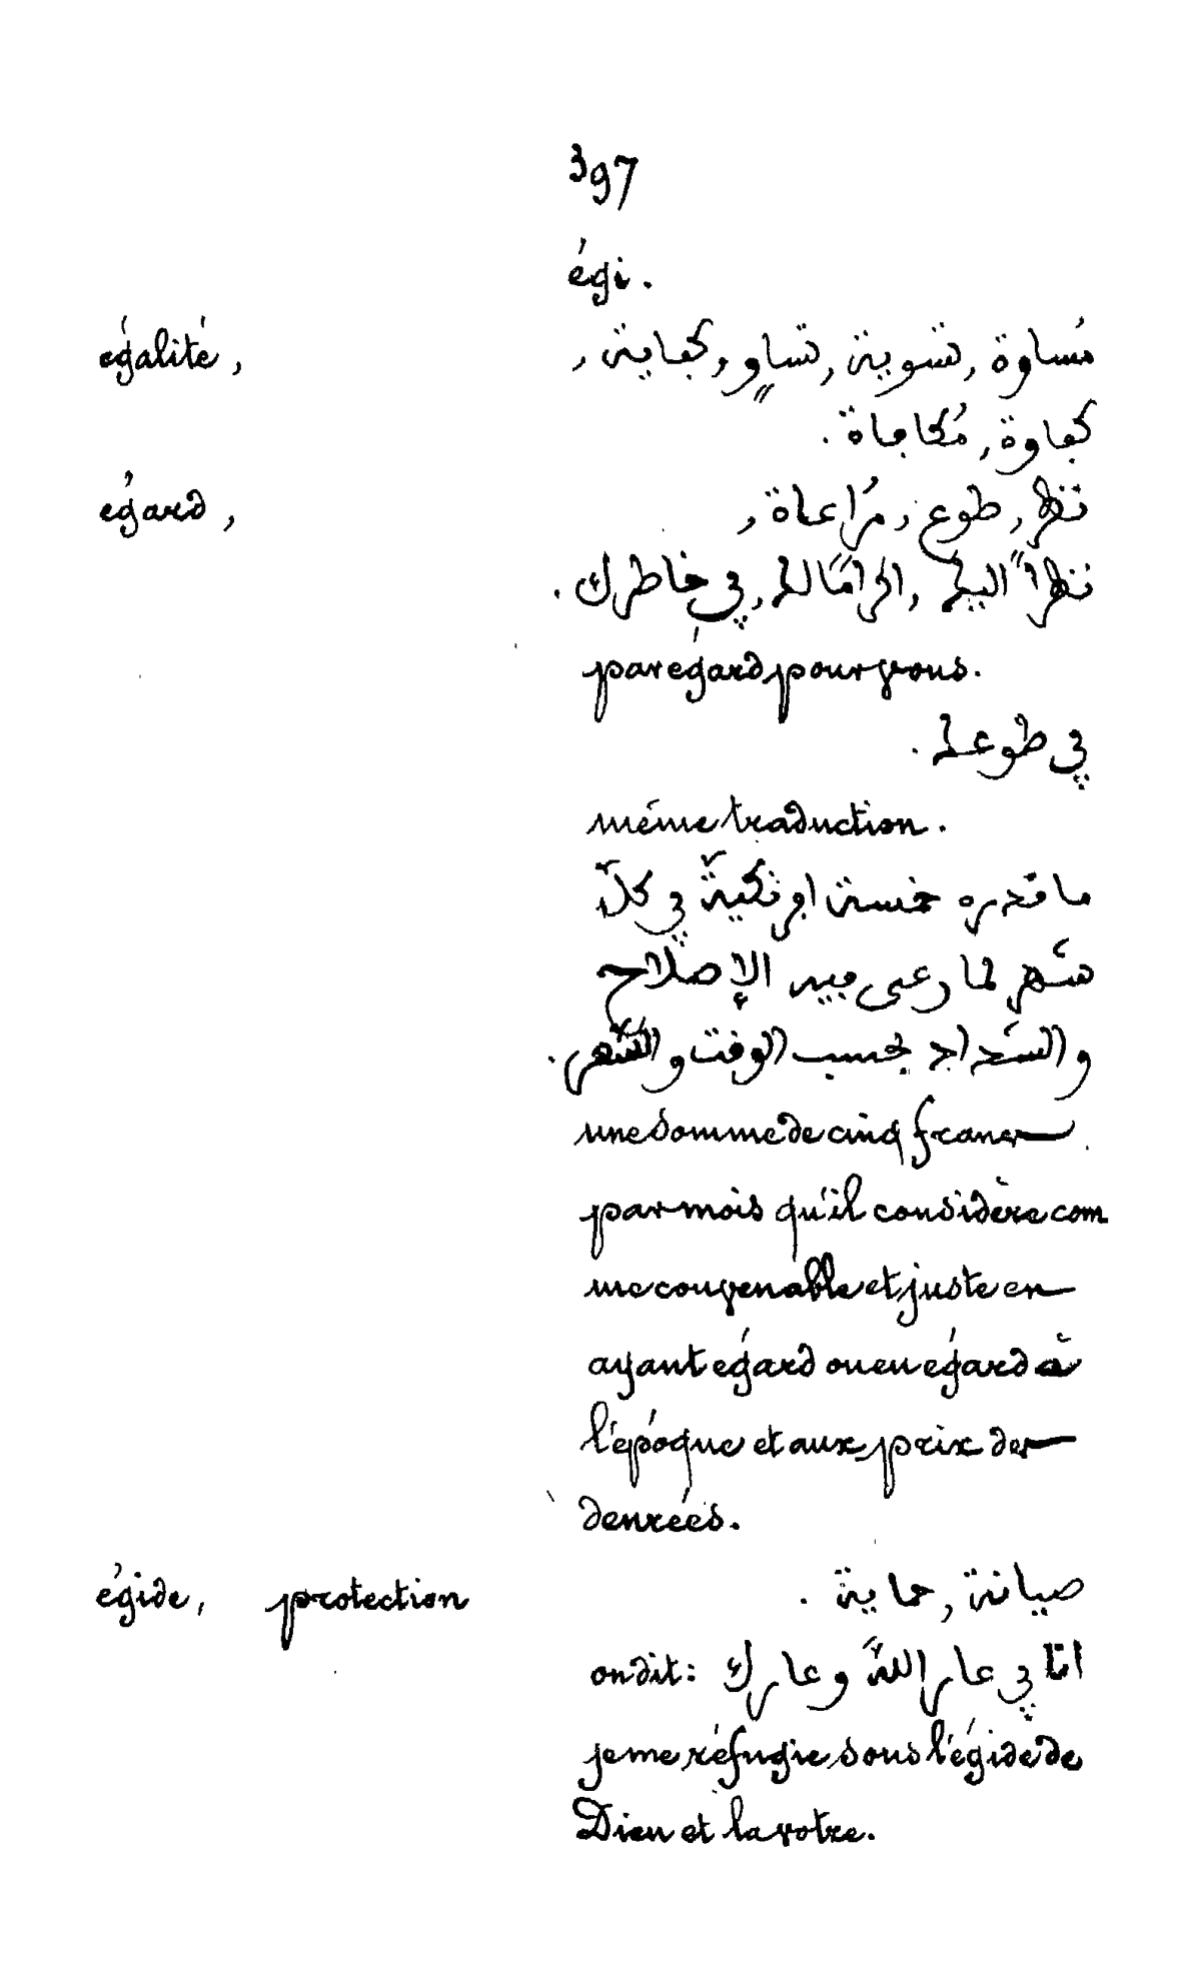 397
égi.
égalité, مُساوة, تسوية, تساوٍ, كفاية,
كفاوة, مُكافاة.
égard, نظر, طوع, مُراعاة,
نظراً اليك, اكرامًا لك, في خاطرك.
par égard pour vous.
في طوعك.
même traduction.
ما قدره خمسة افرنكيّة في كلّ
شهر لما رعى فيه الإصلاح
والسَّداد بحسب الوقت والسّعر.
une somme de cinq francs
par mois qu'il considère com
me convenable et juste en
ayant égard ou eu égard à
l'époque et aux prix des
denrées.
égide, protection صيانة, حماية.
on dit: انا في عار اللّه وعارك
je me réfugie sous l'égide de
Dieu et la votre.